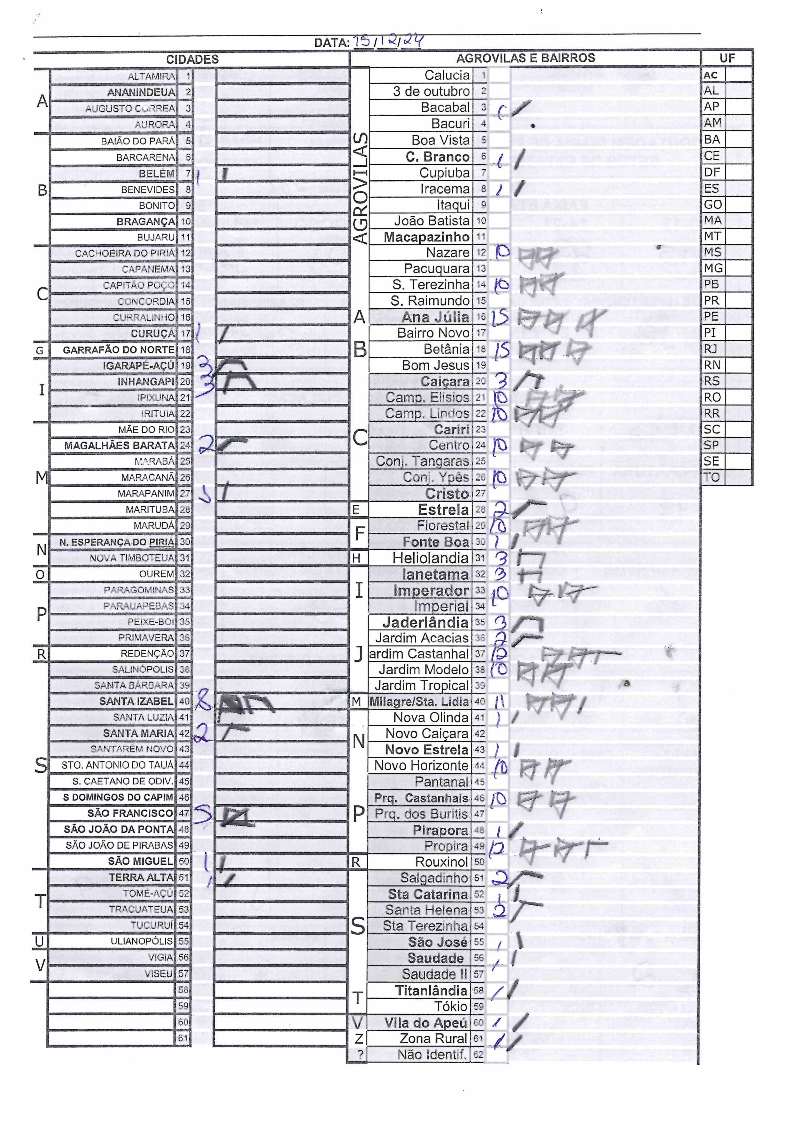 DATA: 15/12/24
CIDADES
A
ALTAMIRA 1
ANANINDEUA 2
AUGUSTO CORREA 3
AURORA 4
B
BAIÃO DO PARÁ 5
BARCARENA 6
BELÉM 7 1
BENEVIDES 8
BONITO 9
BRAGANÇA 10
BUJARU 11
C
CACHOEIRA DO PIRIA 12
CAPANEMA 13
CAPITÃO POÇO 14
CONCORDIA 15
CURRALINHO 16
CURUÇÁ 17 1
G GARRAFÃO DO NORTE 18
I
IGARAPÉ-AÇÚ 19 3
INHANGAPI 20 3
IPIXUNA 21
IRITUIA 22
M
MÃE DO RIO 23
MAGALHÃES BARATA 24 2
MARABÁ 25
MARACANÃ 26
MARAPANIM 27
MARITUBA 28
MARUDÁ 29
N
N. ESPERANÇA DO PIRIA 30
NOVA TIMBOTEUA 31
O OUREM 32
P
PARAGOMINAS 33
PARAUAPEBAS 34
PEIXE-BOI 35
PRIMAVERA 36
R REDENÇÃO 37
S
SALINÓPOLIS 38
SANTA BÁRBARA 39
SANTA IZABEL 40 8
SANTA LUZIA 41
SANTA MARIA 42 2
SANTARÉM NOVO 43
STO. ANTONIO DO TAUÁ 44
S. CAETANO DE ODIV. 45
S DOMINGOS DO CAPIM 46
SÃO FRANCISCO 47 5
SÃO JOÃO DA PONTA 48
SÃO JOÃO DE PIRABAS 49
SÃO MIGUEL 50 1
T
TERRA ALTA 51 1
TOMÉ-AÇÚ 52
TRACUATEUA 53
TUCURUÍ 54
U ULIANOPÓLIS 55
V
VIGIA 56
VISEU 57
58
59
60
61
AGROVILAS E BAIRROS
AGROVILAS
Calucia 1
3 de outubro 2
Bacabal 3 1
Bacuri 4
Boa Vista 5
C. Branco 6 1
Cupiuba 7
Iracema 8 1
Itaqui 9
João Batista 10
Macapazinho 11
Nazare 12 10
Pacuquara 13
S. Terezinha 14 10
S. Raimundo 15
A Ana Júlia 16 15
B
Bairro Novo 17
Betânia 18 15
Bom Jesus 19
C
Caiçara 20 3
Camp. Elísios 21 10
Camp. Lindos 22 10
Cariri 23
Centro 24 10
Conj. Tangaras 25
Conj. Ypês 26 10
Cristo 27
E Estrela 28 2
F
Florestal 29 10
Fonte Boa 30 1
H Heliolandia 31 3
I
Ianetama 32 3
Imperador 33 10
Imperial 34
J
Jaderlândia 35 3
Jardim Acacias 36 2
ardim Castanhal 37 12
Jardim Modelo 38 10
Jardim Tropical 39
M Milagre/Sta. Lidia 40 11
N
Nova Olinda 41 1
Novo Caiçara 42
Novo Estrela 43 1
Novo Horizonte 44 10
P
Pantanal 45
Prq. Castanhais 46 10
Prq. dos Buritis 47
Pirapora 48 1
Propira 49 12
R Rouxinol 50
S
Salgadinho 51 2
Sta Catarina 52 1
Santa Helena 53 2
Sta Terezinha 54
São José 55 1
Saudade 56 1
Saudade II 57
T
Titanlândia 58 1
Tókio 59
V Vila do Apeú 60 1
Z Zona Rural 61 1
? Não Identif. 62
UF
AC
AL
AP
AM
BA
CE
DF
ES
GO
MA
MT
MS
MG
PB
PR
PE
PI
RJ
RN
RS
RO
RR
SC
SP
SE
TO